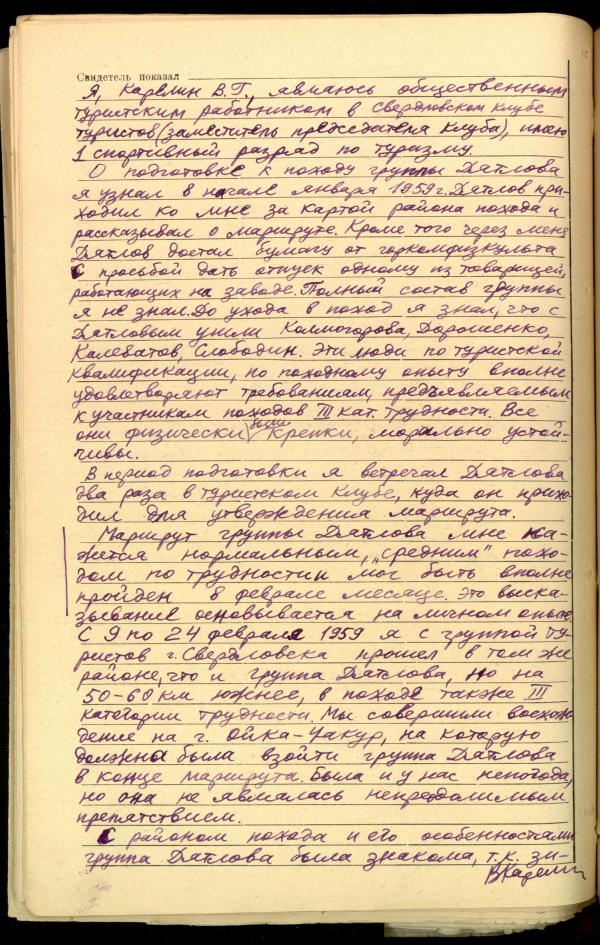 Свидетель показал
Я, Карелин В.Г., являюсь общественным
туристским работником в Свердловском клубе
туристов (заместитель председателя клуба), имею
1 спортивный разряд по туризму.
О подготовке к походу группы Дятлова
я узнал в начале января 1959 г. Дятлов при-
ходил ко мне за картой района похода и
рассказывал о маршруте. Кроме того через меня
Дятлов достал бумагу от горкомфизкульта
с просьбой дать отпуск одному из товарищей,
работающих на заводе. Полный состав группы
я не знал. До ухода в поход я знал, что с
Дятловым ушли Колмогорова, Дорошенко,
Колеватов, Слободин. Эти люди по туристской
квалификации, по походному опыту вполне
удовлетворяют требованиям, предъявляемым
к участникам походов III кат. трудности. Все
они физически были крепки, морально устой-
чивы.
В период подготовки я встречал Дятлова
два раза в туристском клубе, куда он прихо-
дил для утверждения маршрута.
Маршрут группы Дятлова мне ка-
жется нормальным, „средним" похо-
дом по трудности и мог быть вполне
пройден в феврале месяце. Это выска-
зывание основывается на личном опыте.
С 9 по 24 февраля 1959 я с группой ту-
ристов г. Свердловска прошел в том же
районе, что и группа Дятлова, но на
50-60 км южнее, в походе также III
категории трудности. Мы совершили восхож-
дение на г. Ойка-Чакур, на которую
должна была взойти группа Дятлова
в конце маршрута. Была и у нас непогода,
но она не являлась непреодолимым
препятствием.
С районом похода и его особенностями
группа Дятлова была знакома, т.к. зи-
ВКарелин